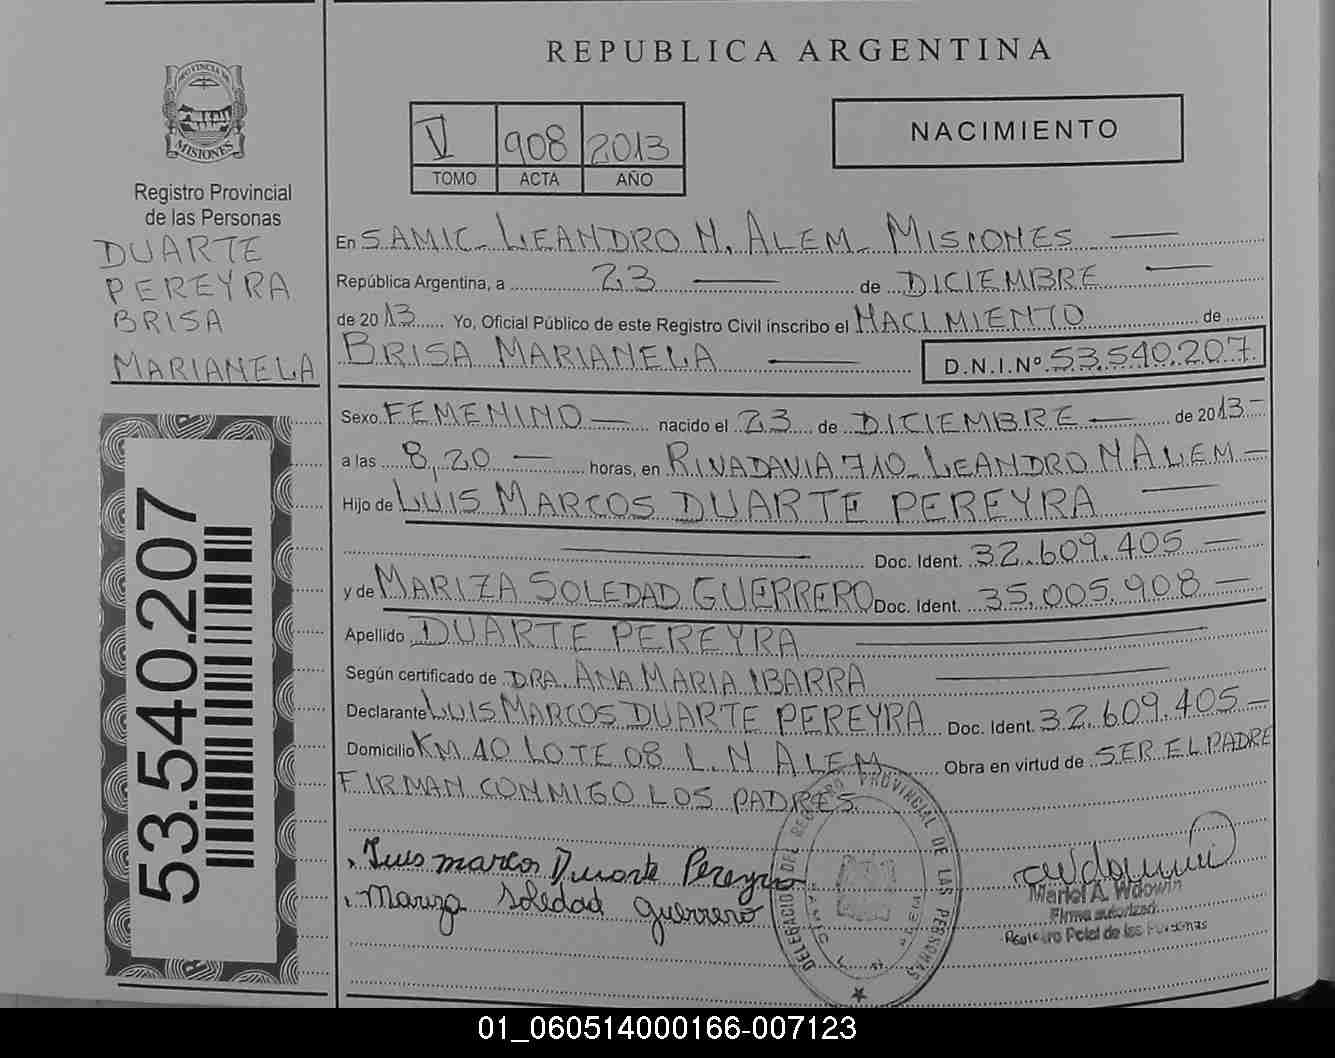 REPUBLICA ARGENTINA
PROVINCIA DE
MISIONES
Registro Provincial
de las Personas
DUARTE
PEREYRA
BRISA
MARIANELA
53.540.207
V 908 2013
TOMO ACTA AÑO
NACIMIENTO
En SAMIC - LEANDRO N. ALEM - MISIONES
República Argentina, a 23 de DICIEMBRE
de 2013 Yo, Oficial Público de este Registro Civil inscribo el NACIMIENTO de
BRISA MARIANELA D.N.I.Nº 53.540.207
Sexo FEMENINO nacido el 23 de DICIEMBRE de 2013
a las 8,20 horas, en RIVADAVIA 710 - LEANDRO N ALEM
Hijo de LUIS MARCOS DUARTE PEREYRA
Doc. Ident. 32.609.405
y de MARIZA SOLEDAD GUERRERO Doc. Ident. 35.005.908
Apellido DUARTE PEREYRA
Según certificado de DRA. ANA MARIA IBARRA
Declarante LUIS MARCOS DUARTE PEREYRA Doc. Ident. 32.609.405
Domicilio KM 10 LOTE 08 L. N ALEM Obra en virtud de SER EL PADRE
FIRMAN CONMIGO LOS PADRES
Luis marcos Duarte Pereyra
Mariza Soledad guerrero
DELEGACION DEL REGISTRO PROVINCIAL DE LAS PERSONAS
SAMIC
L. N. ALEM
Mariel A. Wdowin
Firma autorizada
Registro Pcial de las Personas
01_060514000166-007123